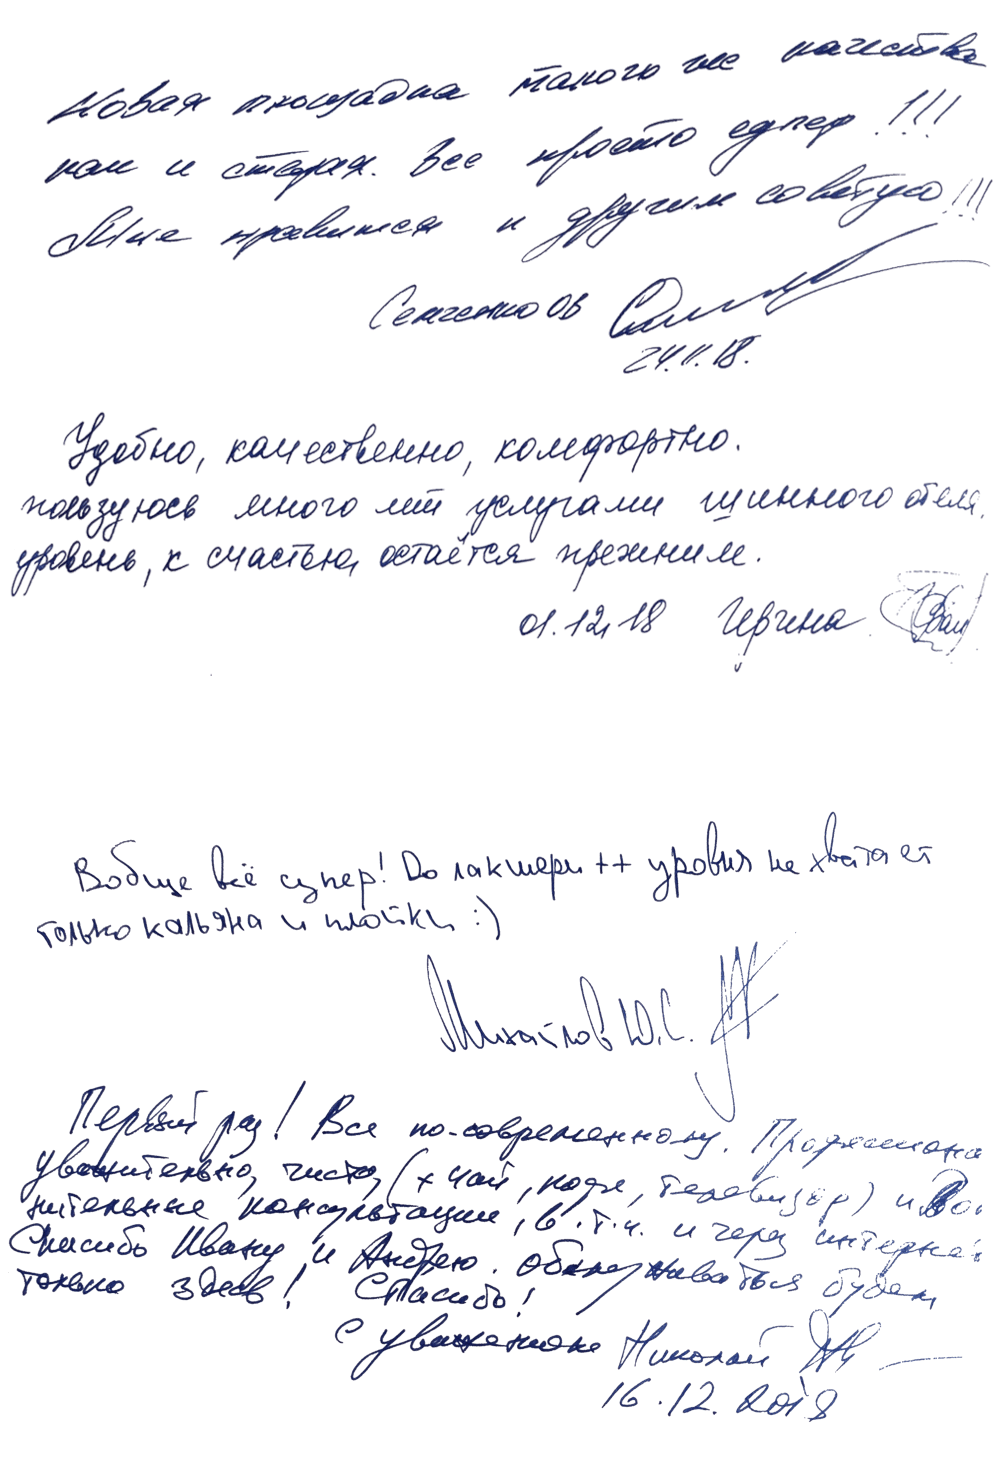 Новая площадка такого же качества
как и старая. Все просто супер!!!
Мне нравится и другим советую!!!
Семченко ОВ
24.11.18.
Удобно, качественно, комфортно.
пользуюсь много лет услугами шинного отеля.
уровень, к счастью, остаётся прежним.
01.12.18 Ирина
Вобще всё супер! До лакшери ++ уровня не хватает
только кальяна и плойки :)
Михайлов Ю.С.
Первый раз! Все по-современному. Професиона
уважительно, чисто, (+ чай, кофе, телевизор) и До
нительные консультации, в т.ч. и через интерне
Спасибо Ивану и Андрею. Обслуживаться будем
только здесь! Спасибо!
С уважением Николай
16.12.2018